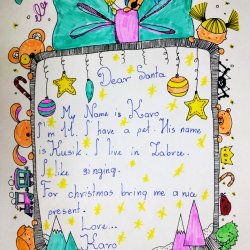 Dear Santa
My Name is Karo
I'm 11. I have a pet. His name
is Kusik. I live in Zabree.
I like singing.
For christmas bring me a nice
present.
Love...
Karo